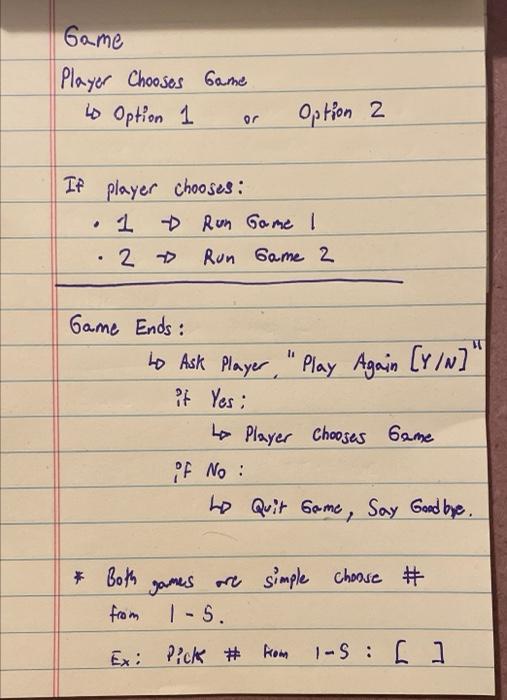 Game
Player Chooses Game
↳ Option 1 or Option 2
If player chooses:
• 1 → Run Game 1
• 2 → Run Game 2
Game Ends:
↳ Ask Player, "Play Again [Y/N]"
if Yes:
↳ Player Chooses Game
if No:
↳ Quit Game, Say Goodbye.
* Both games are simple choose #
from 1-5.
Ex: Pick # from 1-5 : [ ]